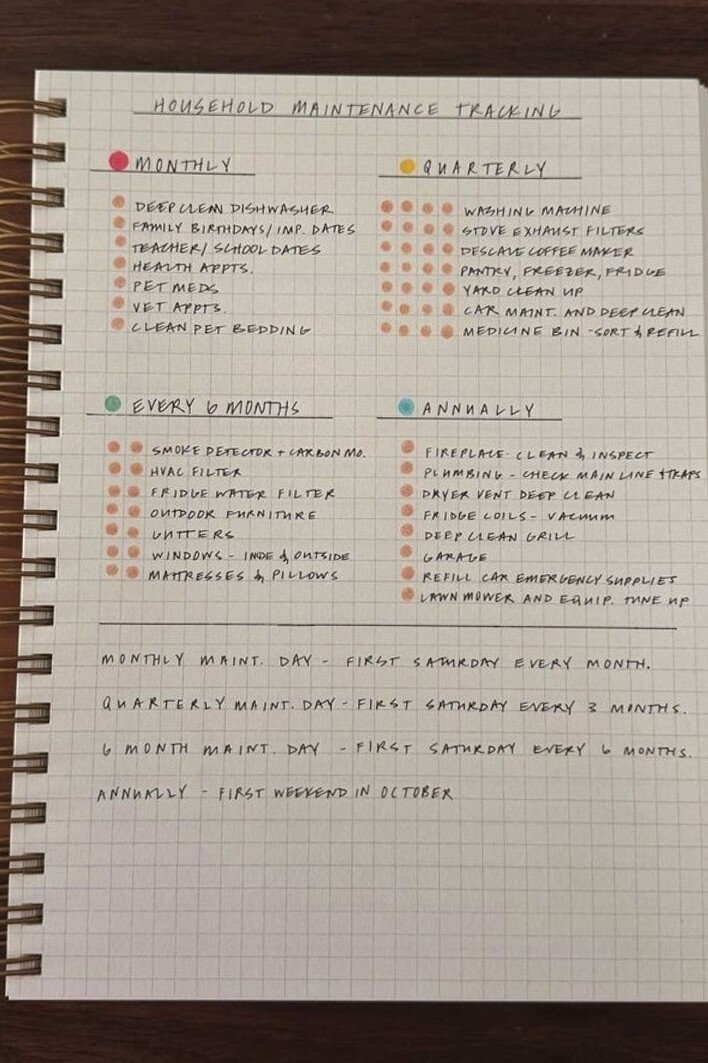 HOUSEHOLD MAINTENANCE TRACKING
MONTHLY
DEEP CLEAN DISHWASHER
FAMILY BIRTHDAYS/ IMP. DATES
TEACHER/ SCHOOL DATES
HEALTH APPTS.
PET MEDS
VET APPTS.
CLEAN PET BEDDING
QUARTERLY
WASHING MACHINE
STOVE EXHAUST FILTERS
DESCALE COFFEE MAKER
PANTRY, FREEZER, FRIDGE
YARD CLEAN UP
CAR MAINT. AND DEEP CLEAN
MEDICINE BIN - SORT & REFILL
EVERY 6 MONTHS
SMOKE DETECTOR + CARBON MO.
HVAC FILTER
FRIDGE WATER FILTER
OUTDOOR FURNITURE
GUTTERS
WINDOWS - INDE & OUTSIDE
MATTRESSES & PILLOWS
ANNUALLY
FIREPLACE- CLEAN & INSPECT
PLUMBING - CHECK MAIN LINE + TRAPS
DRYER VENT DEEP CLEAN
FRIDGE COILS - VACUUM
DEEP CLEAN GRILL
GARAGE
REFILL CAR EMERGENCY SUPPLIES
LAWN MOWER AND EQUIP. TUNE UP
MONTHLY MAINT. DAY - FIRST SATURDAY EVERY MONTH.
QUARTERLY MAINT. DAY - FIRST SATURDAY EVERY 3 MONTHS.
6 MONTH MAINT. DAY - FIRST SATURDAY EVERY 6 MONTHS.
ANNUALLY - FIRST WEEKEND IN OCTOBER